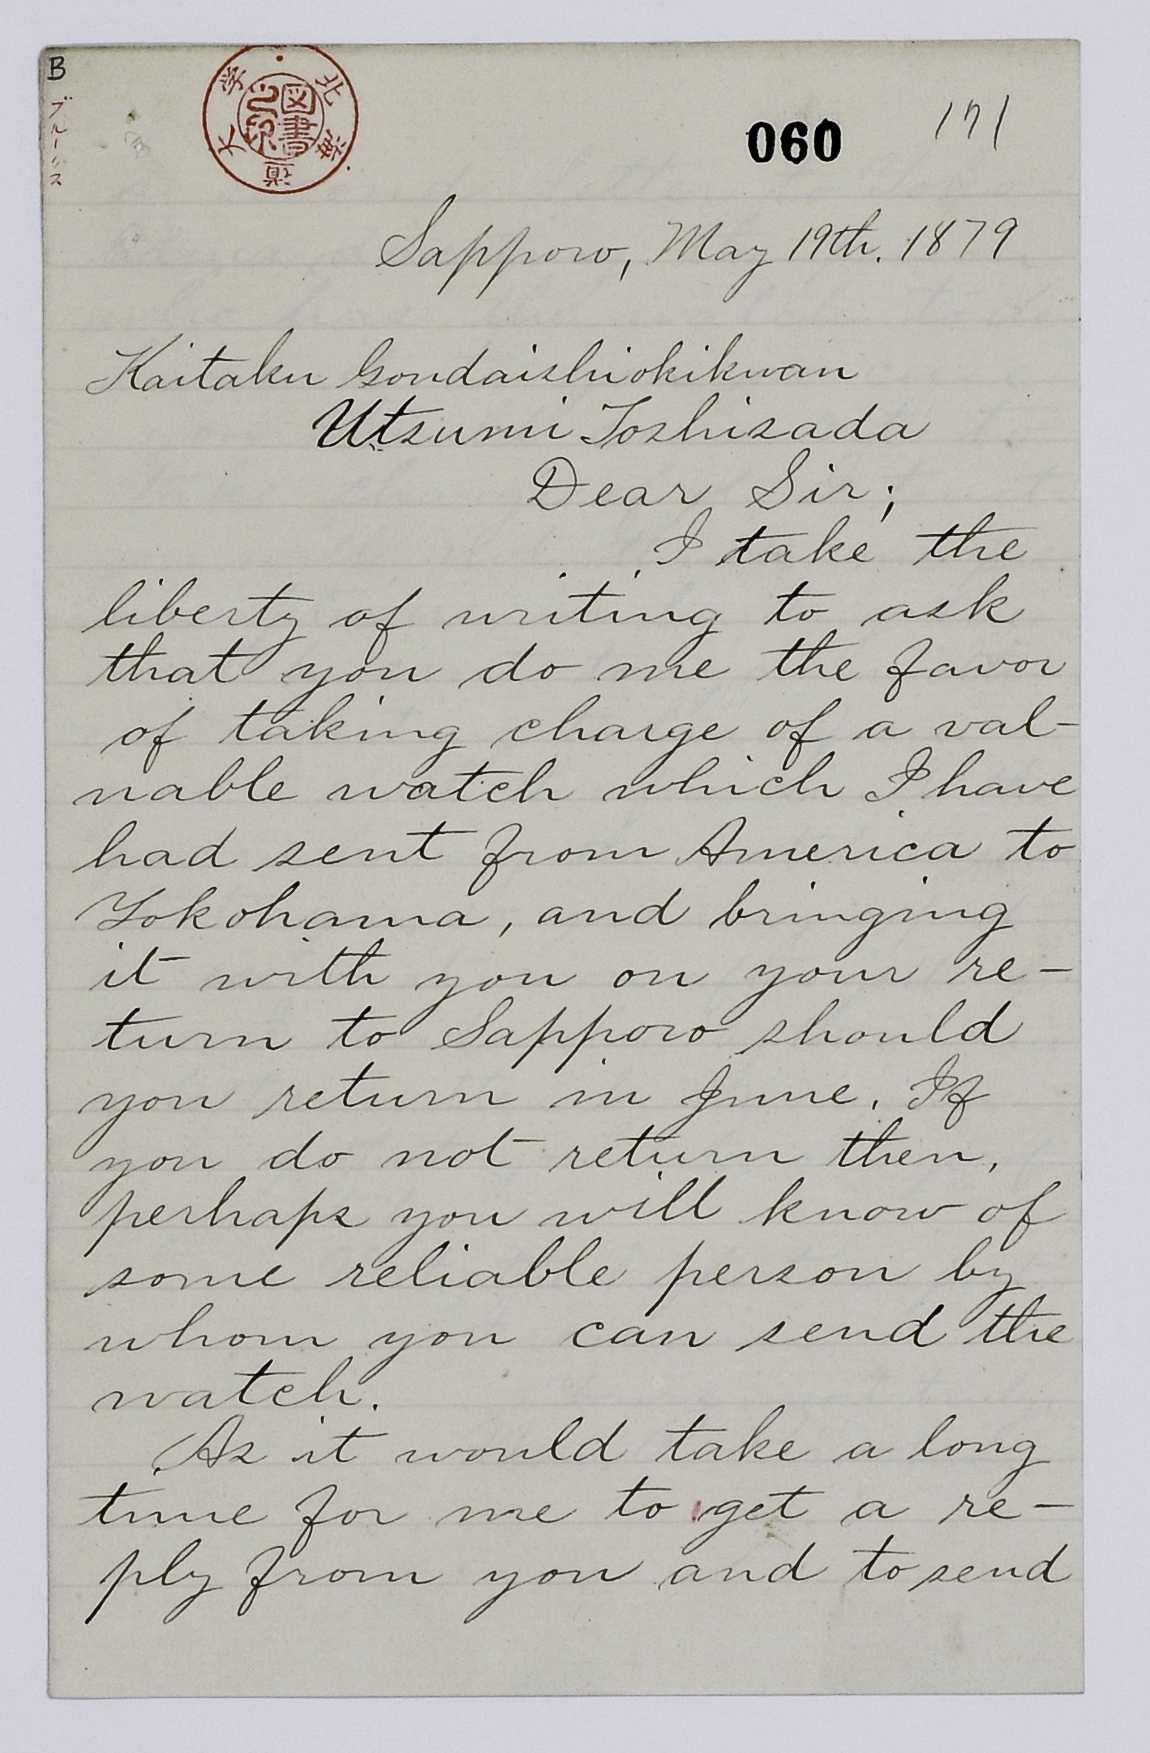 B
ブルークス
北海道大学
図書之印
060
171
Sapporo, May 19th. 1879
Kaitaku Gondaishiokikwan
Utsumi Toshisada
Dear Sir;
I take the
liberty of writing to ask
that you do me the favor
of taking charge of a val-
uable watch which I have
had sent from America to
Yokohama, and bringing
it with you on your re-
turn to Sapporo should
you return in June. If
you do not return then,
perhaps you will know of
some reliable person by
whom you can send the
watch.
As it would take a long
time for me to get a re-
ply from you and to send